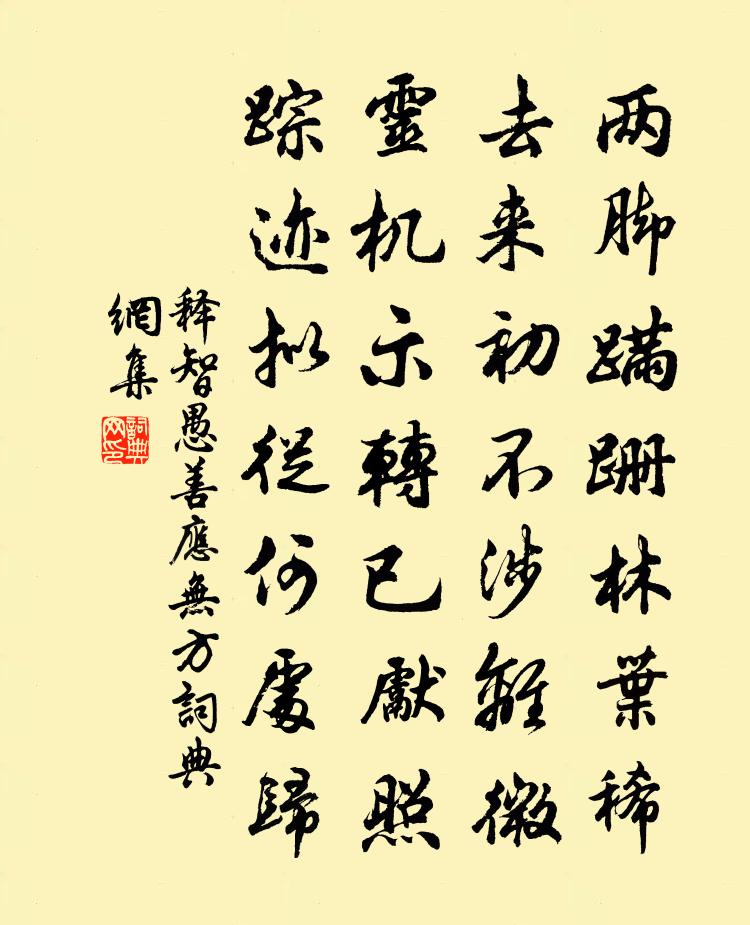 两脚蹒跚林葉稀
去来初不涉離微
靈机示轉已獻照
踪迹拟從何處歸
释智愚善應無方詞典
網集
詞典
网印